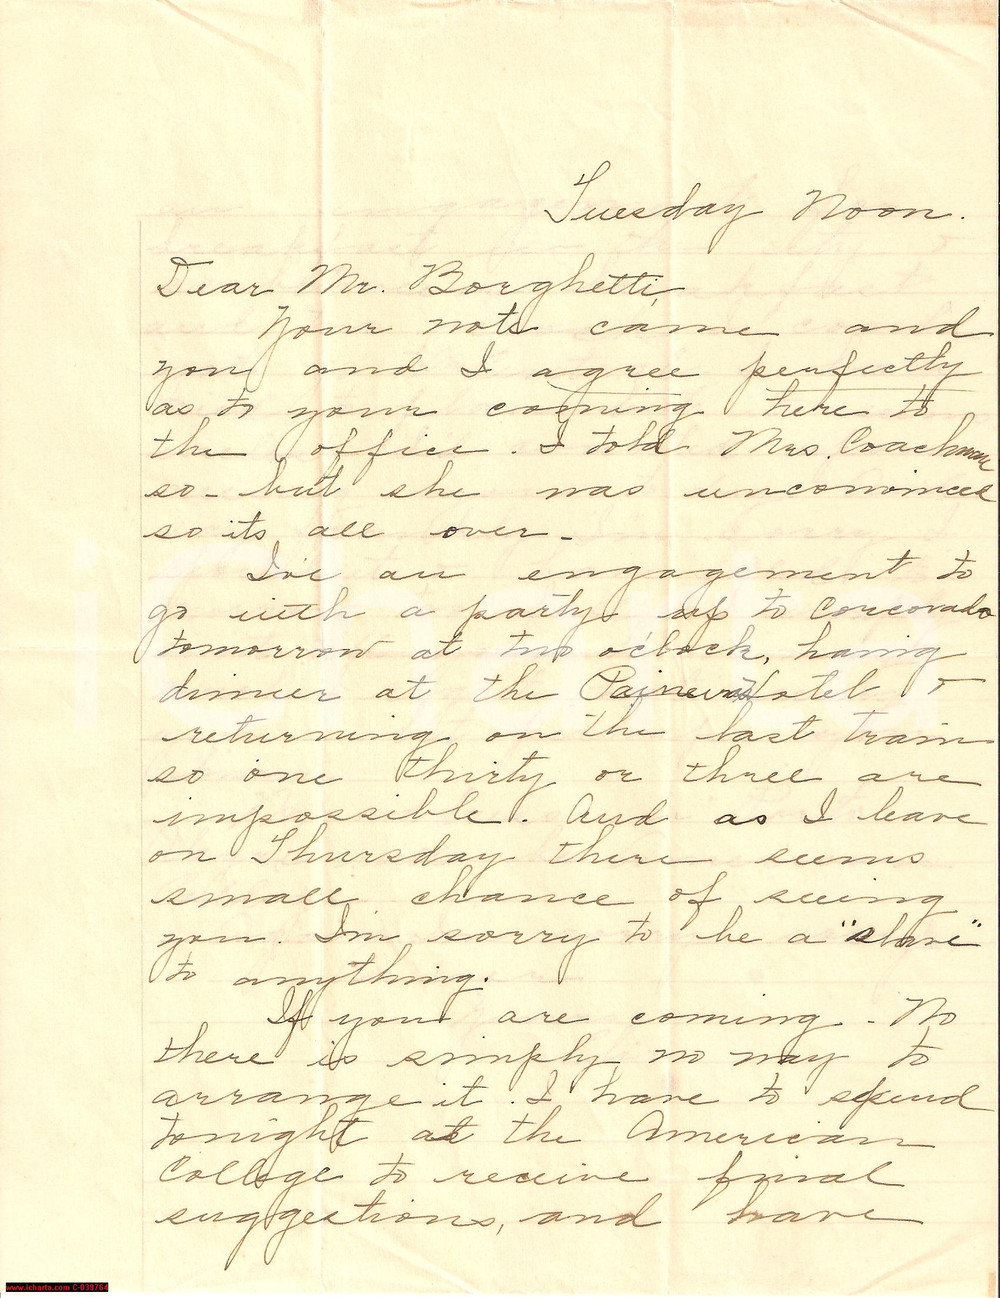 Tuesday Noon.
Dear Mr. Borghetti,
Your note came and
you and I agree perfectly
as to your coming here to
the office. I told Mrs. Coachman
so - but she was unconvinced
so its all over -
I've an engagement to
go with a party up to Corcovado
tomorrow at two o'clock, having
dinner at the Paineiras Hotel &
returning on the last train
so one thirty or three are
impossible. And as I leave
on Thursday there seems
small chance of seeing
you. I'm sorry to be a "slave"
to anything.
If you are coming - No
there is simply no way to
arrange it. I have to spend
tonight at the American
College to receive final
suggestions, and have
iCharta
www.icharta.com C-039764